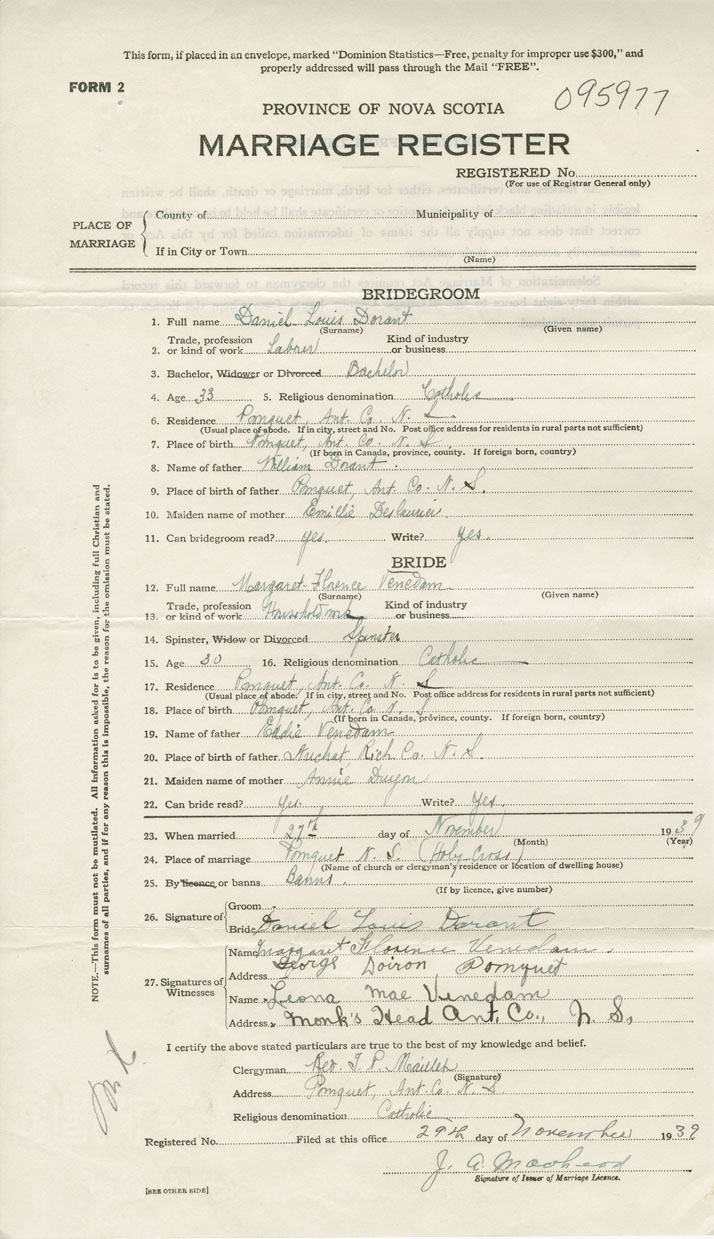 This form, if placed in an envelope, marked "Dominion Statistics—Free, penalty for improper use $300," and
properly addressed will pass through the Mail "FREE".
FORM 2
095977
PROVINCE OF NOVA SCOTIA
MARRIAGE REGISTER
REGISTERED No.
(For use of Registrar General only)
PLACE OF MARRIAGE
County of Municipality of
If in City or Town
(Name)
BRIDEGROOM
1. Full name Daniel Louis Dorant
(Surname) (Given name)
Trade, profession Kind of industry
2. or kind of work Labrer or business
3. Bachelor, Widower or Divorced Bachelor
4. Age 33 5. Religious denomination Catholic
6. Residence Pomquet, Ant. Co. N. S
(Usual place of abode. If in city, street and No. Post office address for residents in rural parts not sufficient)
7. Place of birth Pomquet, Ant. Co. N. S.
(If born in Canada, province, county. If foreign born, country)
8. Name of father William Dorant.
9. Place of birth of father Pomquet, Ant. Co. N. S.
10. Maiden name of mother Emillie Deslaurier
11. Can bridegroom read? yes. Write? yes.
BRIDE
12. Full name Margaret Florence Venedam
(Surname) (Given name)
Trade, profession Kind of industry
13. or kind of work Household wk or business
14. Spinster, Widow or Divorced Spinster
15. Age 30 16. Religious denomination Catholic
17. Residence Pomquet, Ant. Co. N. S
(Usual place of abode. If in city, street and No. Post office address for residents in rural parts not sufficient)
18. Place of birth Pomquet, Ant. Co. N. S
(If born in Canada, province, county. If foreign born, country)
19. Name of father Eddie Venedam
20. Place of birth of father Rich Co. N. S
21. Maiden name of mother Annie
22. Can bride read? Yes. Write? Yes.
23. When married 27th day of November 1939
(Month) (Year)
24. Place of marriage Pomquet N. S. (Holy Cross)
(Name of church or clergyman's residence or location of dwelling house)
25. By licence or banns Banns.
(If by licence, give number)
26. Signature of
Groom
Bride Daniel Louis Dorant
27. Signatures of Witnesses
Name Margaret Florence Venedam.
Address George Doiron Pomquet
Name Leona Mae Venedam
Address Monk's Head Ant. Co., N. S.
I certify the above stated particulars are true to the best of my knowledge and belief.
Clergyman Rev. J. P. Maillet
(Signature)
Address Pomquet, Ant. Co. N. S
Religious denomination Catholic
Registered No. Filed at this office 29th day of November 1939
J. A.
Signature of Issuer of Marriage Licence.
[SEE OTHER SIDE]
NOTE.—This form must not be mutilated. All information asked for is to be given, including full Christian and
surnames of all parties, and if for any reason this is impossible, the reason for the omission must be stated.